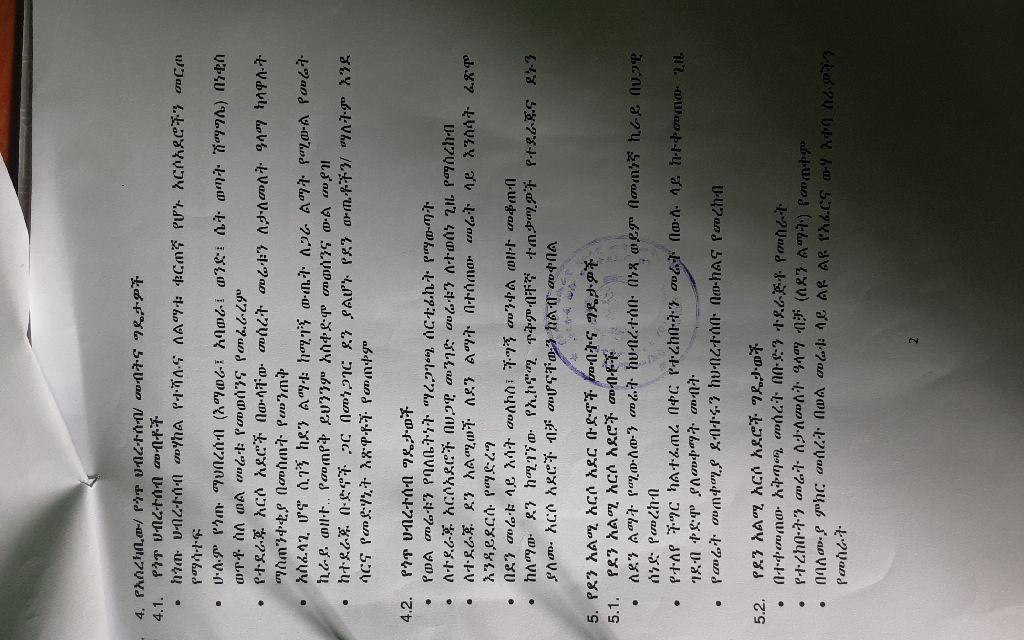 4. የአስረካቢው/ የነጥ ህብረተሰብ/ መብትና ግዴታዎች
4.1. የነጥ ህብረተሰብ መብቶች
• ከነጡ ህብረተሰብ መሃከል የተሻሉና ለልማቱ ቁርጠኛ የሆኑ አርሶአደሮችን መርጦ
የማሳተፍ
• ሁሉም የነጡ ማህበረሰብ (እማወራ፣ አባወራ፣ ወንድ፣ ሴት ወጣት ሽማግሌ) በንቂስ
ወጥቶ ስለ ወል መሬቱ የመወሰንና የመፈራረም
• የተደራጁ አርሶ አደሮች በውላቸው መሰረት መሬቱን ለታለመለት ዓላማ ካላዋሉት
ማስጠንቀቂያ በመስጠት የመንጠቅ
• አስፈላጊ ሆኖ ሲገኝ ከደን ልማቱ ከሚገኝ ውጤት ለጋራ ልማት የሚውል የመሬት
ኪራይ ወዘተ.. የመጠየቅ ይህንንም አስቀድሞ መወሰንና ውል መያዝ
• ከተደራጁ ቡድኖች ጋር በመነጋገር ደን ያልሆኑ የደን ውጤቶችን/ ማለትም እንደ
ሳርና የመድሃኒት እጽዋቶች የመጠቀም
4.2. የነጥ ህብረተሰብ ግዴታዎች
• የወል መሬቱን የባለቤትነት ማረጋገጫ ሰርቲፊኬት የማውጣት
• ለተደራጁ አርሶአደሮች በህጋዊ መንገድ መሬቱን ለተወሰነ ጊዜ የማስረከብ
• ለተደራጁ ደን አልሚዎች ለደን ልማት በተሰጠው መሬት ላይ እንስሳት ፈጽሞ
እንዳይደርሱ የማድረግ
• በደን መሬቱ ላይ እሳት መለኮስ፣ ችግኝ መንቀል ወዘተ መቆጠብ
• ከለማው ደን ከሚገኘው የኢኮኖሚ ጥቅምብቸኛ ተጠቃሚዎች የተደራጁና ደኑን
ያለሙ አርሶ አደሮች ብቻ መሆናቸውን ከልብ መቀበል
5. የደን አልሚ አርሶ አደር ቡድኖች መብትና ግዴታዎች
5.1. የደን አልሚ አርሶ አደሮች መብቶች
• ለደን ልማት የሚውለውን መሬት ከህብረተሰቡ በነጻ ወይም በመጠነኛ ኪራይ በህጋዊ
ሰነድ የመረከብ
• የተለየ ችግር ካልተፈጠረ በቀር የተረከቡትን መሬት በውሉ ላይ ከተቀመጠው ጊዜ
ገደብ ቀድሞ ያለመቀማት መብት
• የመሬት መጠቀሚያ ደብተሩን ከህብረተሰቡ በውክልና የመረከብ
5.2. የደን አልሚ አርሶ አደሮች ግዴታወች
• በተቀመጠው አቅጣጫ መሰረት በቡድን ተደራጅቶ የመስራት
• የተረከቡትን መሬት ለታለመለት ዓላማ ብቻ (ለደን ልማት) የመጠቀም
• በባለሙያ ምክር መሰረት በወል መሬቱ ላይ ልዩ ልዩ የአፈርና ውሃ እቀባ ስራዎችን
የመስራት
2